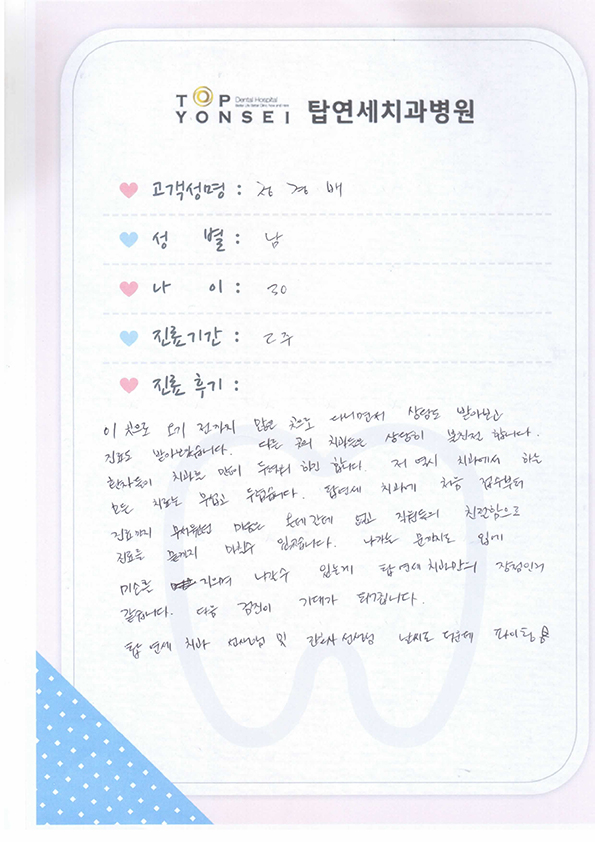 TOP Dental Hospital
YONSEI 탑연세치과병원
고객성명 : 정경배
성 별 : 남
나 이 : 30
진료기간 : 2주
진료 후기 :
이 곳으로 오기 전까지 많은 곳으로 다니면서 상담도 받아보고
진료도 받아보았습니다. 다른 곳의 치과들은 상당히 불친절 합니다.
환자들이 치과를 많이 두려워 하긴 합니다. 저 역시 치과에서 하는
모든 치료는 무섭고 두렵습니다. 탑연세 치과에 처음 접수부터
진료까지 무서웠던 마음은 온데간데 없고 직원들의 친절함으로
진료를 끝까지 마칠수 있었습니다. 나가는 문까지도 입에
미소를 지으며 나갈수 있는게 탑연세치과만의 장점인거
같습니다. 다음 검진이 기대가 되기됩니다.
탑연세 치과 선생님 및 간호사 선생님 날씨도 더운데 파이팅